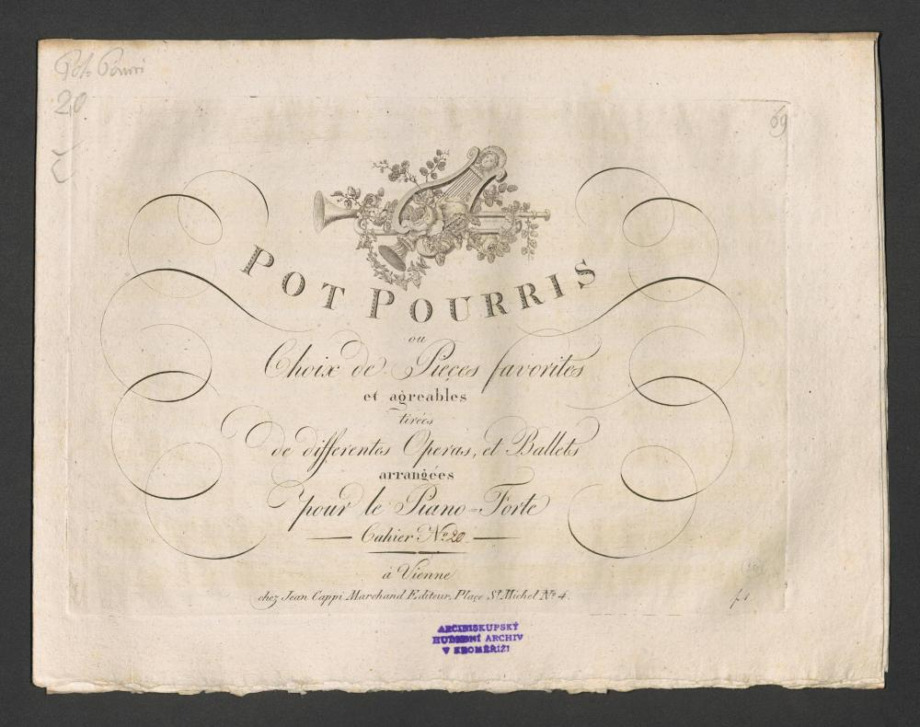 Pot Pourri
20
69
POT POURRIS
ou
Choix de Pieçes favorites
et agreables
tirées
de differentes Operas, et Ballets
arrangées
pour le Piano-Forte
Cahier Nº 20
à Vienne
chez Jean Cappi Marchand Editeur, Plaçe St. Michel Nº 4.
ARCIBISKUPSKÝ
HUDEBNÍ ARCHIV
V KROMĚŘÍŽI